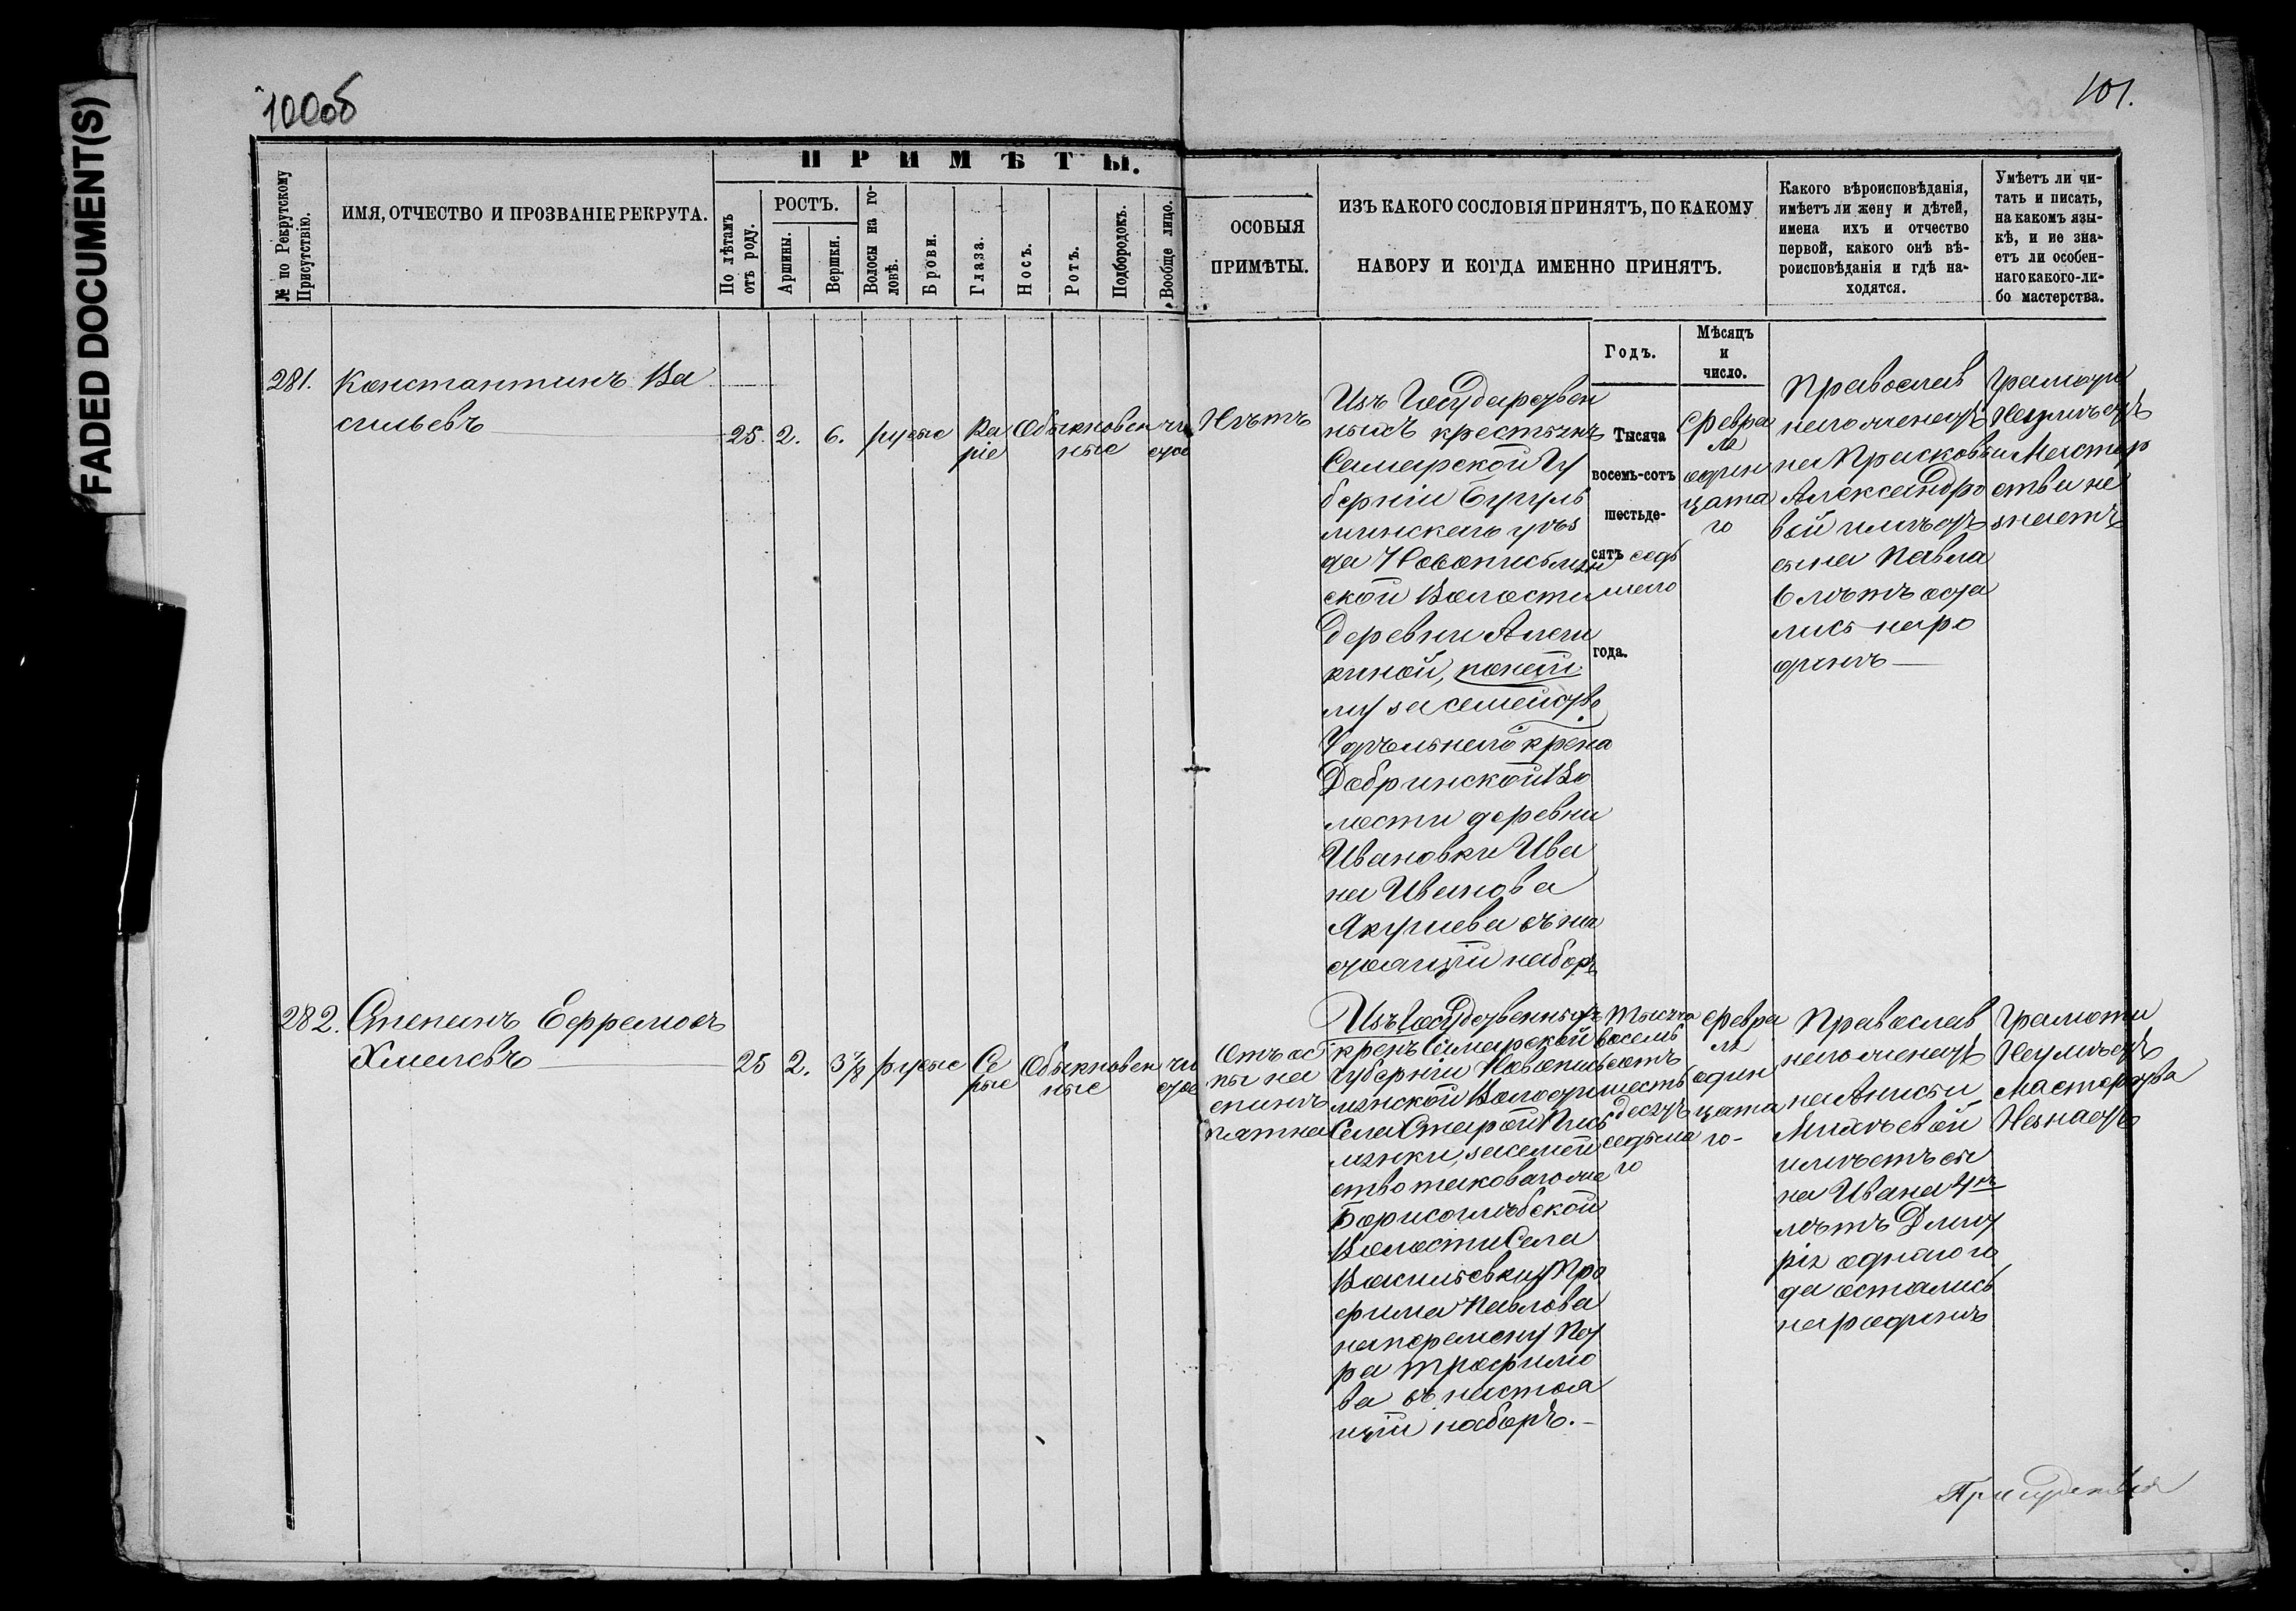 FADED DOCUMENT(S)
100об
101.
ПРИМѢТЫ.
№ по Рекрутскому
Присутствію.
ИМЯ, ОТЧЕСТВО И ПРОЗВАНІЕ РЕКРУТА.
По лѣтамъ
отъ роду.
РОСТЪ.
Аршины.
Вершки.
Волосы на го-
ловѣ.
Брови.
Глаза.
Носъ.
Ротъ.
Подбородокъ.
Вообще лицо.
ОСОБЫЯ
ПРИМѢТЫ.
ИЗЪ КАКОГО СОСЛОВІЯ ПРИНЯТЪ, ПО КАКОМУ
НАБОРУ И КОГДА ИМЕННО ПРИНЯТЪ.
Какого вѣроисповѣданія,
имѣетъ ли жену и дѣтей,
имена ихъ и отчество
первой, какого онѣ вѣ-
роисповѣданія и гдѣ на-
ходятся.
Умѣетъ ли чи-
тать и писать,
на какомъ язы-
кѣ, и не зна-
етъ ли особен-
наго какого-ли-
бо мастерства.
Годъ.
Мѣсяцъ
и
число.
281.
Константинъ Ва
сильевъ
25.
2.
6.
русые
Ка
ріе
Обыкновен
ные
чи
стое
Нѣтъ
Изъ Государствен
ныхъ крестьянъ
Самарской Гу
берніи Бугуль
минскаго уѣз
да Новописьмян
ской Волости
Деревни Алеш
киной,
му за семейство
Удѣльнаго кре‍на
Добринской Во
лости деревни
Ивановки Ива
на Иванова
Якушева въ на
стоящій наборъ
Тысяча
восемь-сотъ
шестьде-
сятъ седь
маго
года.
Февра
ля
один
цата
го
Православ
наго женатъ
на Прасковьи
Александро
вой имѣетъ
сына Павла
6 лѣтъ оста
лись на ро
динѣ
Грамоти
Неумѣетъ
и Мастер
ства не
знаетъ
282.
Степанъ Ефремовъ
Хмелевъ
25
2.
3 7/8
русые
Се
рые
Обыкновен
ные
чи
стое
Отъ ос
пы на
спинѣ
пятна
Изъ Госудственныхъ
кренъ Самарской
Губерніи Новопись
мянской Волости
Села Старой Пись
мянки, за семей
ство таковаго же
Борисоглѣбской
Волости Села
Васильевки Тро
фима Павлова
на перемену Пет
ра Трофимо
ва въ настоя
щій наборъ.
Тысяча
восемь
сотъ
шесть
десятъ
седьма
го
Февра
ля
один
цата
го
Православ
наго женатъ
на Анисьи
Михѣевой
имѣетъ сы
на Ивана 4хъ
лѣтъ Дмит
рія однаго го
да остались
на родинѣ
Грамоти
Неумѣетъ
мастерства
Незнаетъ